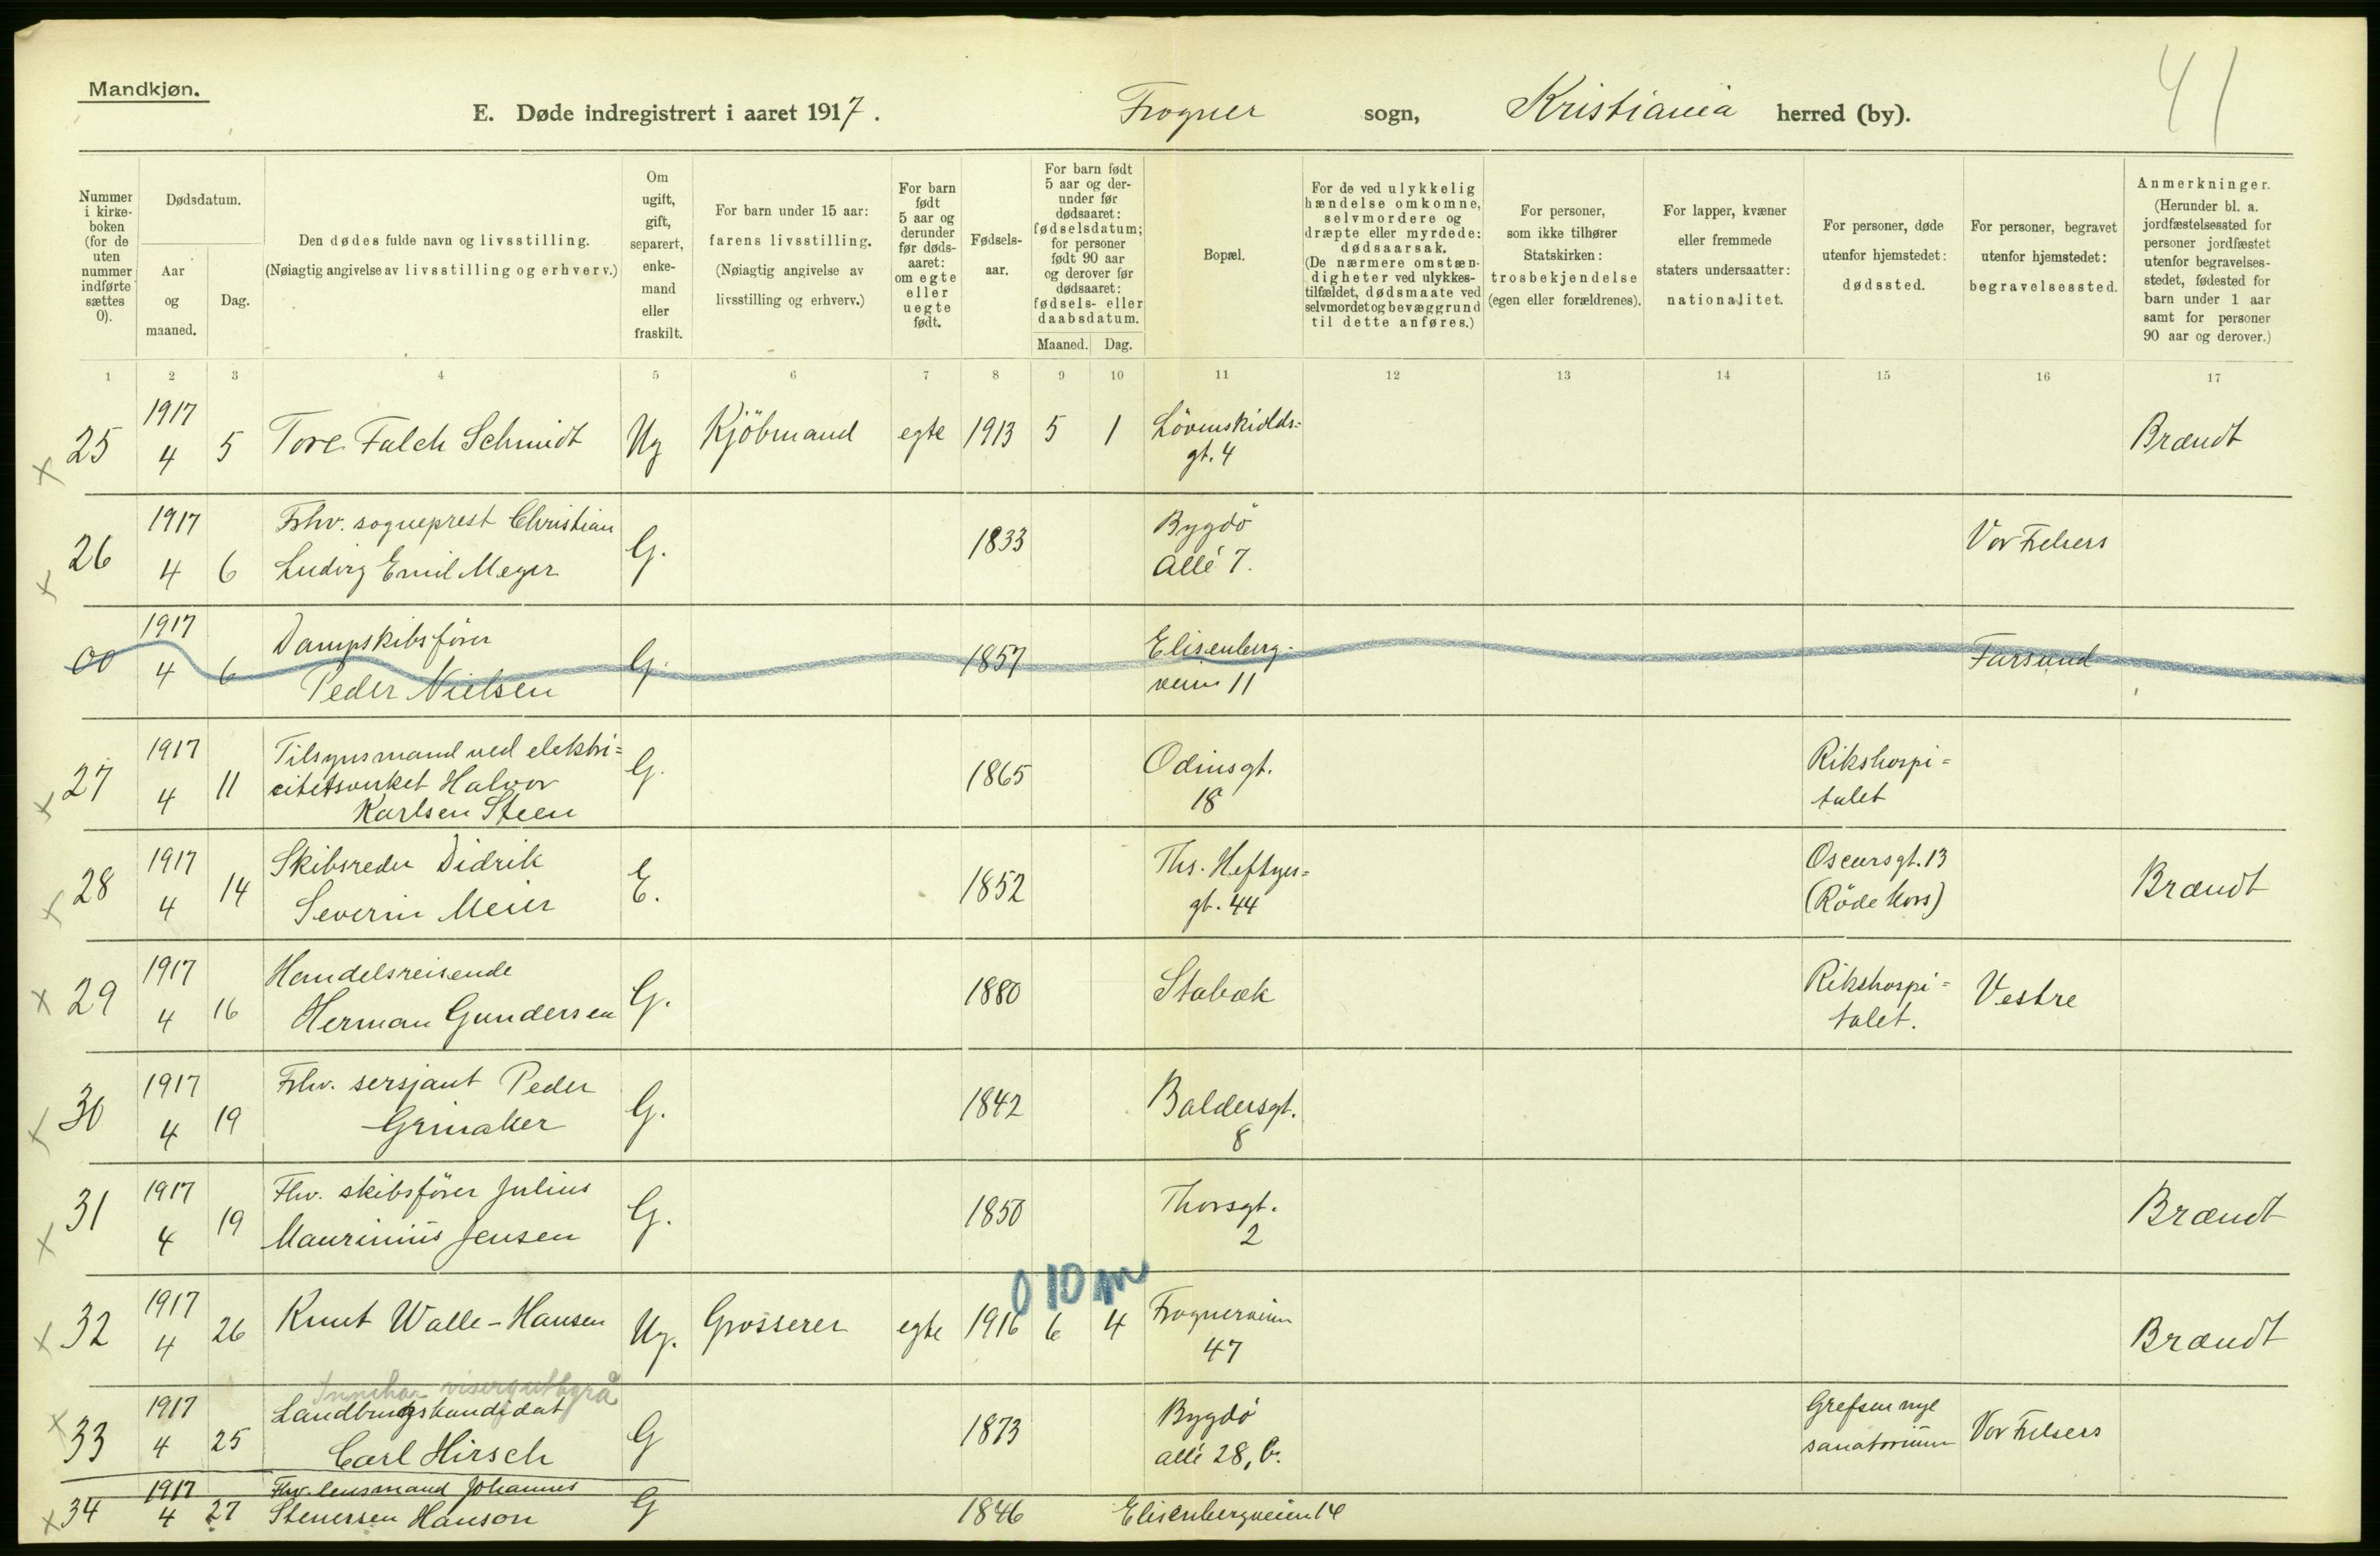 Mandkjøn.
E. Døde indregistrert i aaret 1917. Frogner sogn, Kristiania herred (by).
41
Nummer i kirkeboken (for de uten nummer indførte sættes 0).
Dødsdatum.
Aar og maaned.
Dag.
Den dødes fulde navn og livsstilling.
(Nøiagtig angivelse av livsstilling og erhverv.)
Om ugift, gift, separert, enkemand eller fraskilt.
For barn under 15 aar: farens livsstilling.
(Nøiagtig angivelse av livsstilling og erhverv.)
For barn født 5 aar og derunder før dødsaaret: om egte eller uegte født.
Fødselsaar.
For barn født 5 aar og derunder før dødsaaret: fødselsdatum; for personer født 90 aar og derover før dødsaaret: fødsels- eller daabsdatum.
Maaned. Dag.
Bopæl.
For de ved ulykkelig hændelse omkomne, selvmordere og dræpte eller myrdede: dødsaarsak.
(De nærmere omstændigheter ved ulykkestilfældet, dødsmaate ved selvmordet og bevæggrund til dette anføres.)
For personer, som ikke tilhører Statskirken: trosbekjendelse (egen eller forældrenes).
For lapper, kvæner eller fremmede staters undersaatter: nationalitet.
For personer, døde utenfor hjemstedet: dødssted.
For personer, begravet utenfor hjemstedet: begravelsessted.
Anmerkninger.
(Herunder bl. a. jordfæstelsessted for personer jordfæstet utenfor begravelsesstedet, fødested for barn under 1 aar samt for personer 90 aar og derover.)
1 2 3 4 5 6 7 8 9 10 11 12 13 14 15 16 17
x 25 1917 4 5 Tore Falch Schmidt Ug Kjöbmand egte 1913 5 1 Lövenskiolds=
gt. 4 Brændt
x 26 1917 4 6 Fhv. sogneprest Christian
Ludvig Emil Meyer G. 1833 Bygdö
Allé 7. Vor Frelsers
00 1917 4 6 Dampskibsförer
Peder Nielsen G. 1857 Elisenberg-
veien 11 Farsund
x 27 1917 4 11 Tilsynsmand ved elektri=
citetsverket Halvor
Karlsen Steen G. 1865 Odinsgt.
18 Rikshospi=
talet
x 28 1917 4 14 Skibsreder Didrik
Severin Meier E. 1852 Ths. Heftyes=
gt. 44 Oscarsgt. 13
(Röde Kors) Brændt
x 29 1917 4 16 Handelsreisende
Herman Gundersen G. 1880 Stabæk Rikshospi=
talet. Vestre
x 30 1917 4 19 Fhv. sersjant Peder
Grinaker G. 1842 Baldersgt.
8
x 31 1917 4 19 Fhv. skibsförer Julius
Maurinius Jensen G. 1850 Thorsgt.
2 Brændt
0 10 m
x 32 1917 4 26 Knut Walle-Hansen Ug. Grosserer egte 1916 6 4 Frognerveien
47 Brændt
Innehar visergutbyrå
x 33 1917 4 25 Landbrugskandidat
Carl Hirsch G 1873 Bygdö
allé 28, b. Grefsen nye
sanatorium Vor Frelsers
x 34 1917 4 27 Fhv. lensmand Johannes
Stenersen Hanson G 1846 Elisenbergveien 14